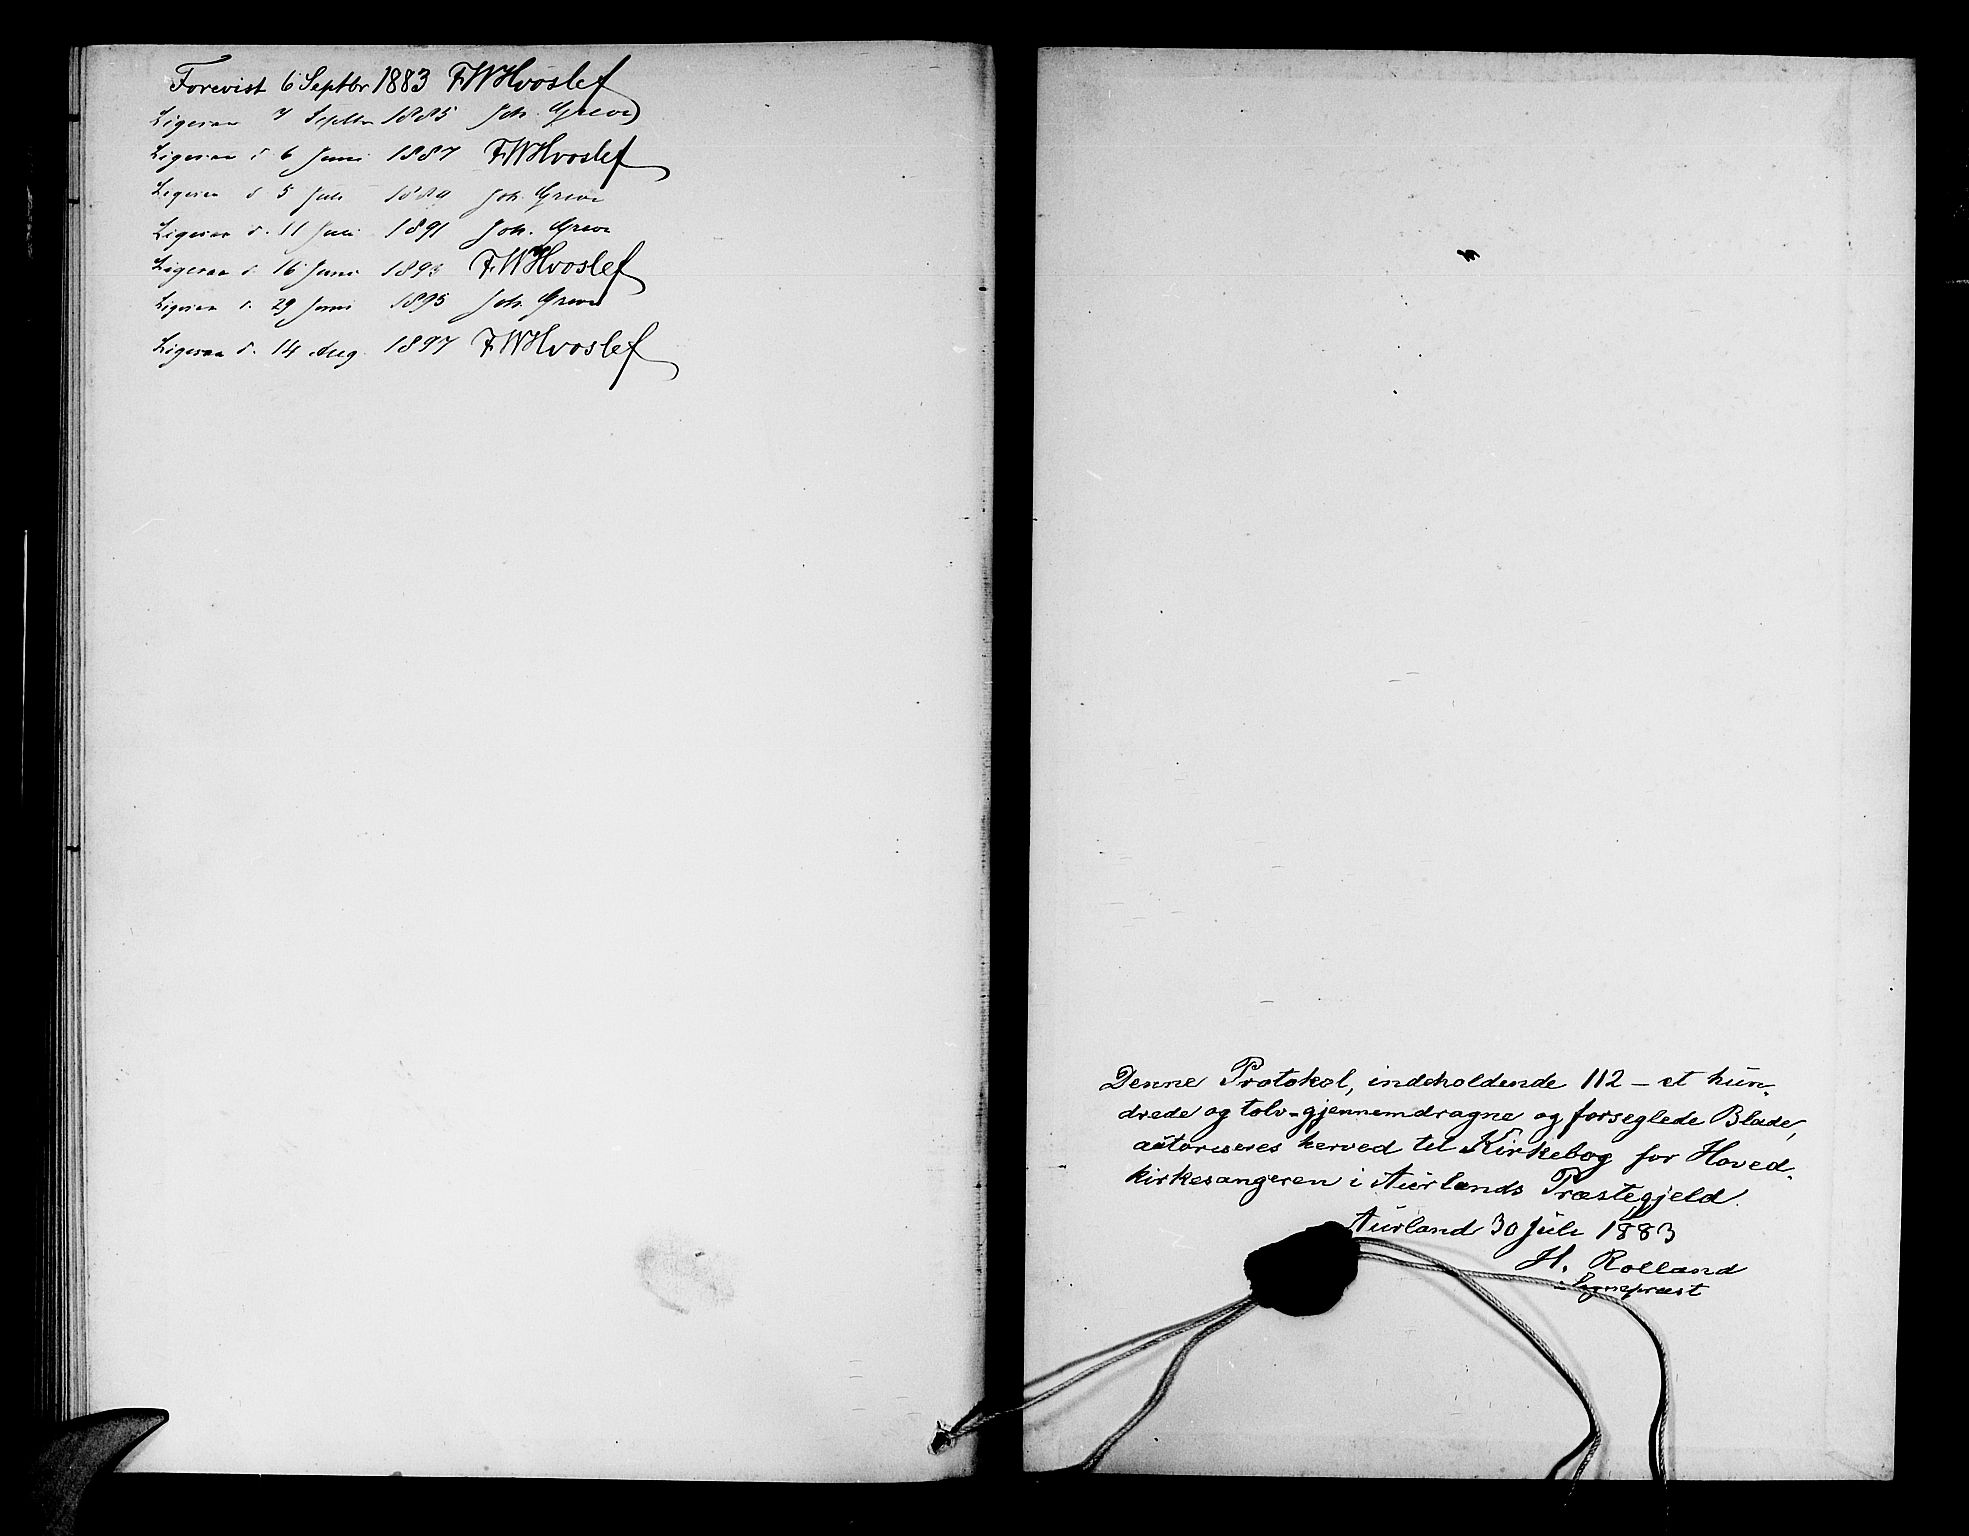 Forevist 6 Septbr 1883 FWHvoslef
Ligesaa 7 Septbr 1885 Joh. Greve
Ligesaa d 6 Juni 1887 FWHvoslef
Ligesaa d 5 Juli 1889 Joh. Greve
Ligesaa d. 11 Juli 1891 Joh. Greve
Ligesaa d. 16 Juni 1893 FWHvoslef
Ligesaa d. 29 Juni 1895 Joh. Greve
Ligesaa d. 14 Aug. 1897 FWHvoslef
Denne Protokol, indeholdende 112 – et hun-
drede og tolv – gjennemdragne og forseglede Blade,
autoriseres herved til Kirkebog for Hoved-
kirkesangeren i Aurlands Præstegjeld.
Aurland 30 Juli 1883
H. Rolland
Sognepræst